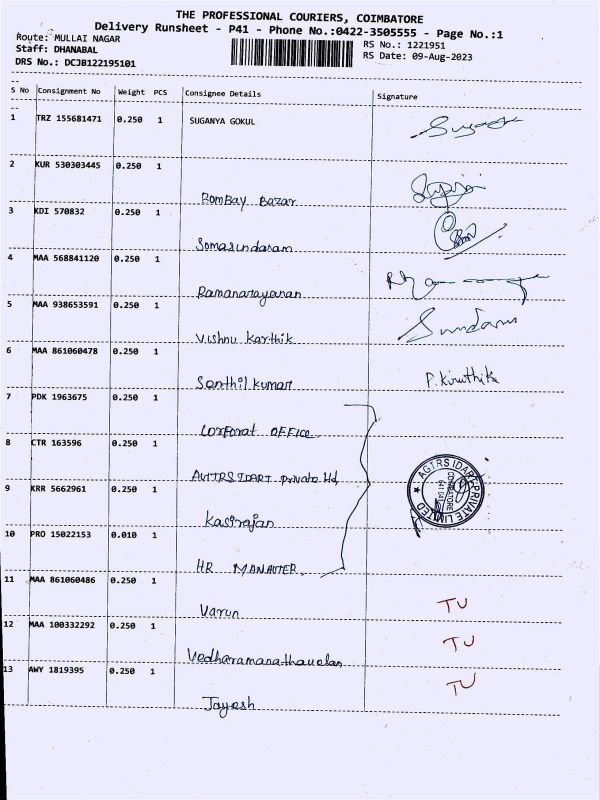 THE PROFESSIONAL COURIERS, COIMBATORE
Delivery Runsheet - P41 - Phone No.:0422-3505555 - Page No.:1
Route: MULLAI NAGAR
Staff: DHANABAL
DRS No.: DCJB122195101
RS No.: 1221951
RS Date: 09-Aug-2023
S No Consignment No Weight PCS Consignee Details Signature
1 TRZ 155681471 0.250 1 SUGANYA GOKUL
2 KUR 530303445 0.250 1
Bombay Bazar
3 KDI 570832 0.250 1
Somasundaram
4 MAA 568841120 0.250 1
Ramanarayanan
5 MAA 938653591 0.250 1 Sundaru
Vishnu Karthik
6 MAA 861060478 0.250 1 P. Kiruthika
Senthil kumar
7 PDK 1963675 0.250 1
Corporat OFFICE
8 CTR 163596 0.250 1
IDART private ltd
9 KRR 5662961 0.250 1 AGTRS IDART PRIVATE LIMITED
Kasirajan
10 PRO 15022153 0.010 1
HR
11 MAA 861060486 0.250 1
Varun TU
12 MAA 100332292 0.250 1
TU
13 AWY 1819395 0.250 1
Jayesh TU